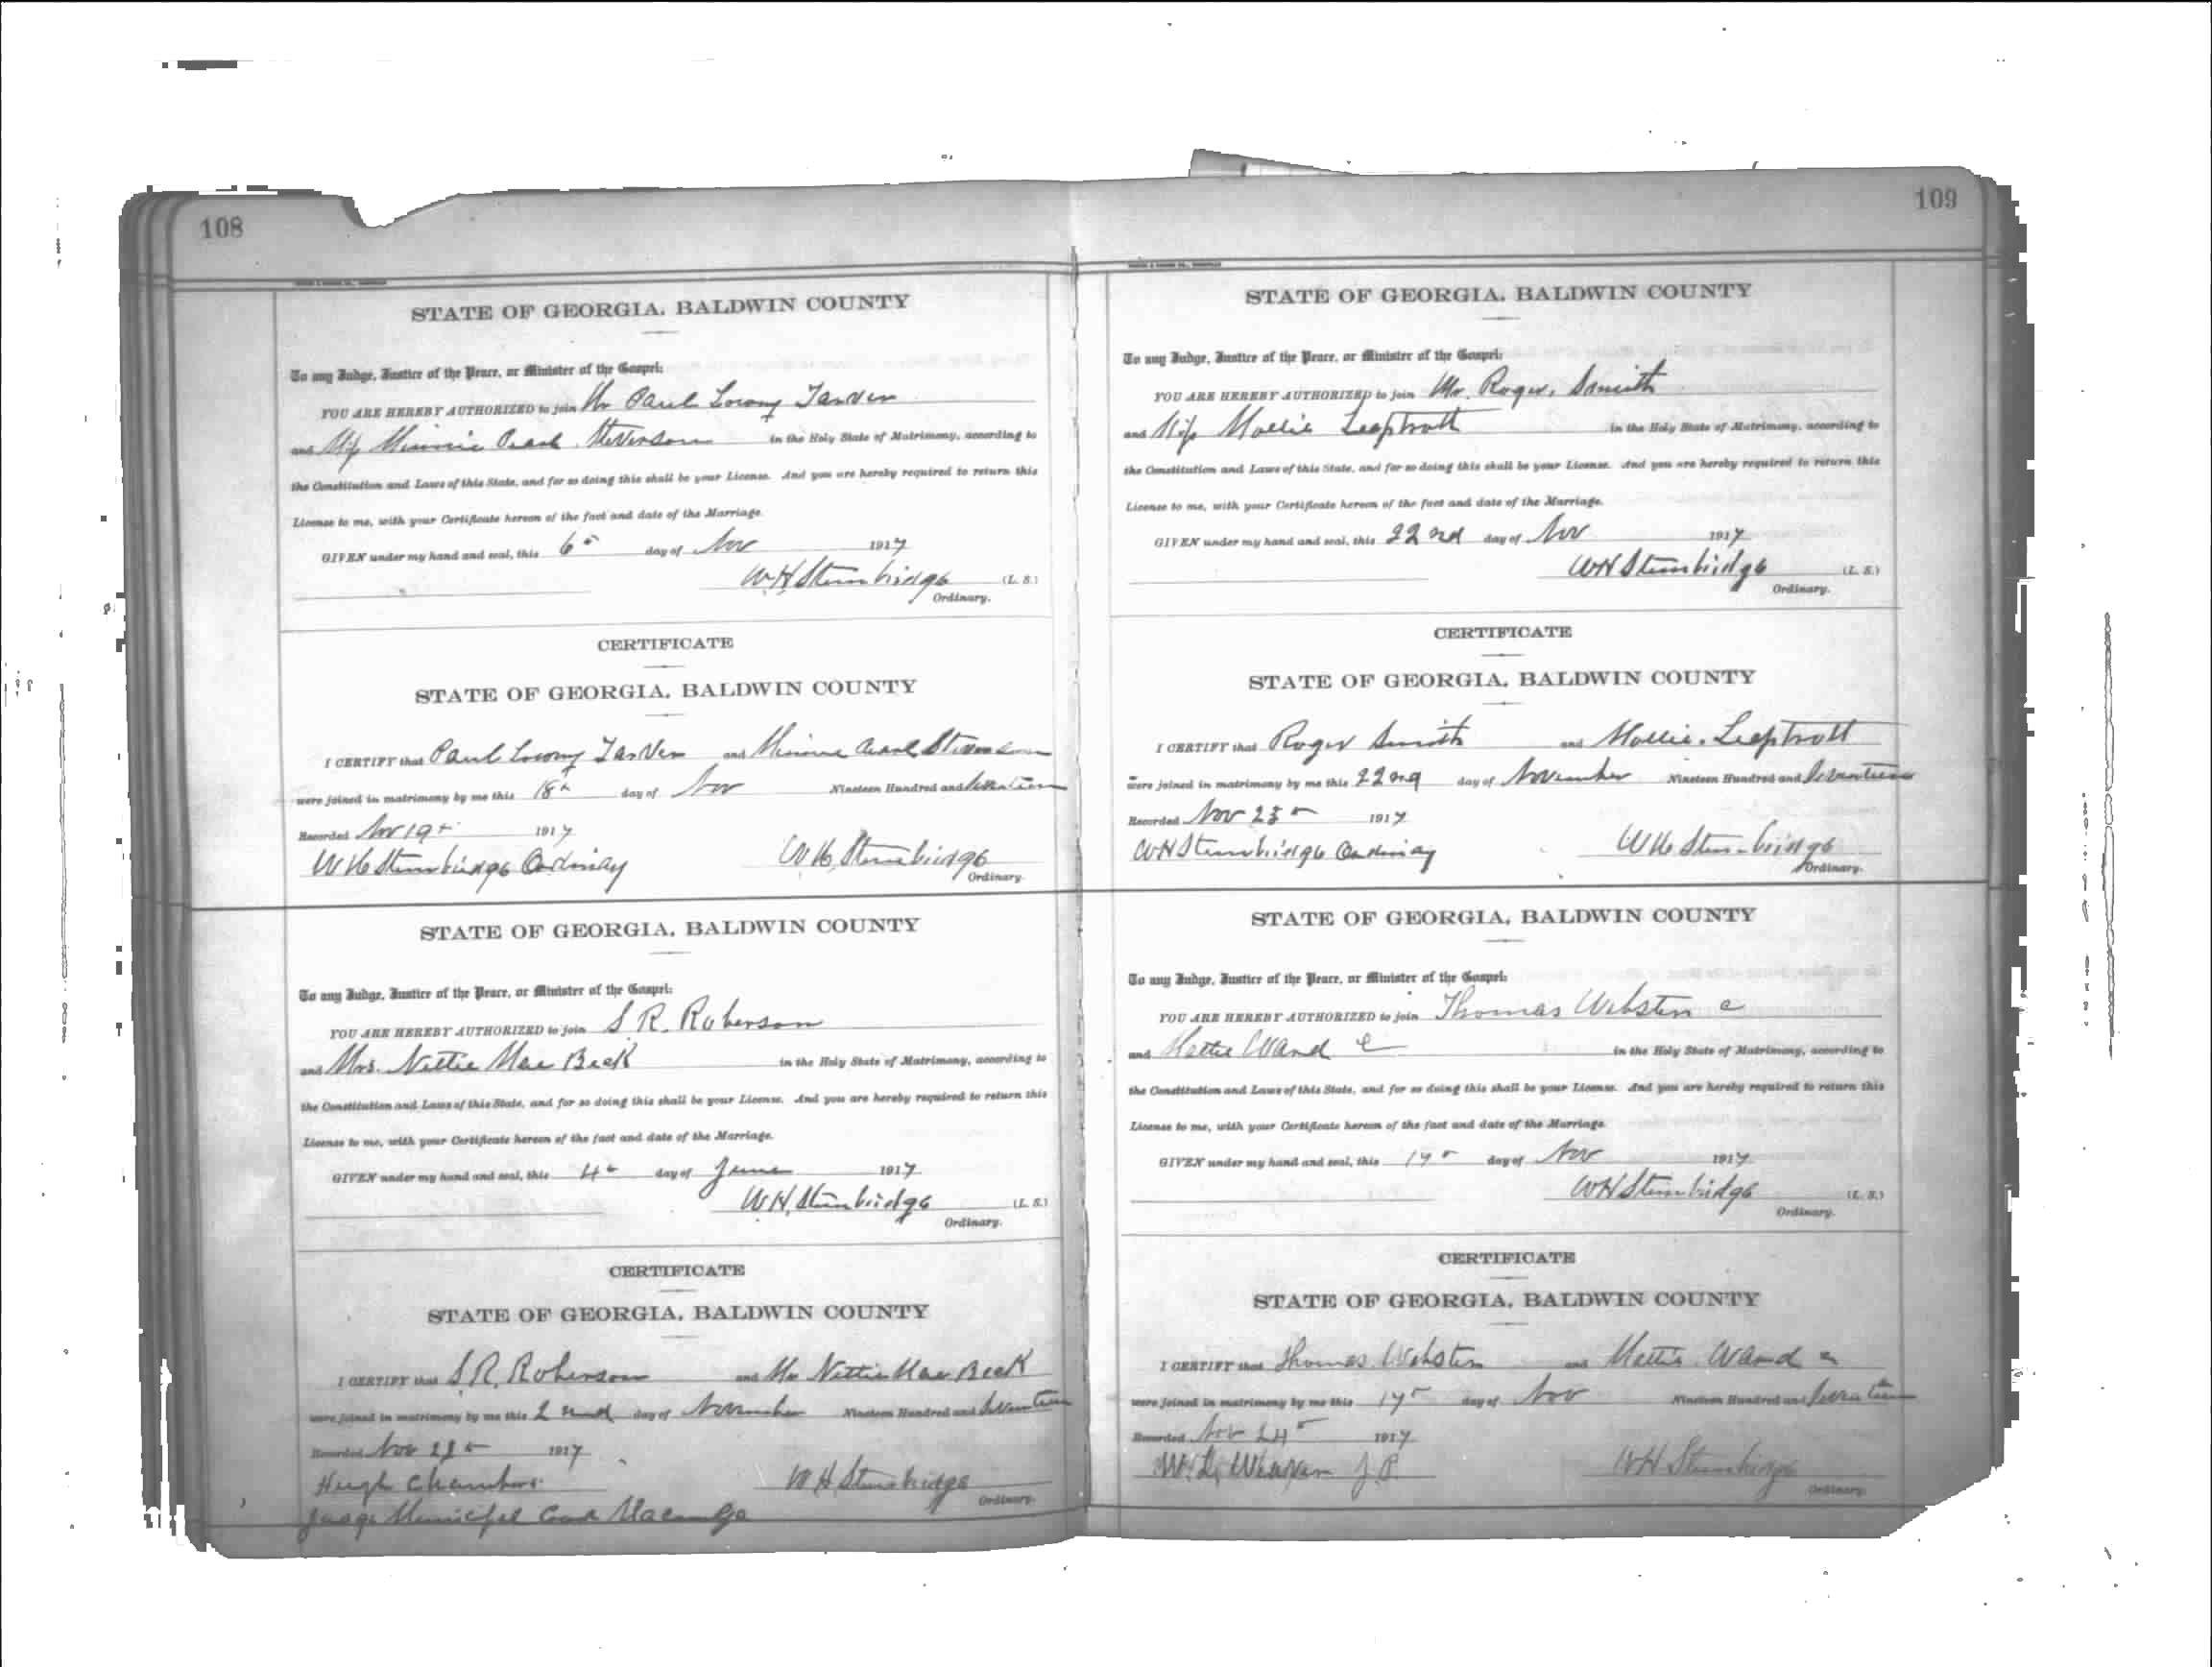 108
STATE OF GEORGIA, BALDWIN COUNTY
To any Judge, Justice of the Peace, or Minister of the Gospel:
YOU ARE HEREBY AUTHORIZED to join Mr Paul Tarver
and Miss Minnie Pearl Stevenson in the Holy State of Matrimony, according to
the Constitution and Laws of this State, and for so doing this shall be your License. And you are hereby required to return this
License to me, with your Certificate hereon of the fact and date of the Marriage.
GIVEN under my hand and seal, this 6th day of Nov 1917
W H Stembridge (L. S.)
Ordinary.
CERTIFICATE
STATE OF GEORGIA, BALDWIN COUNTY
I CERTIFY that Paul Tarver and Minnie Pearl Stevenson
were joined in matrimony by me this 18th day of Nov Nineteen Hundred and Seventeen
Recorded Nov 19th 1917
W H Stembridge Ordinary W H Stembridge
Ordinary.
STATE OF GEORGIA, BALDWIN COUNTY
To any Judge, Justice of the Peace, or Minister of the Gospel:
YOU ARE HEREBY AUTHORIZED to join S R. Roberson
and Mrs. Nettie Mae Beck in the Holy State of Matrimony, according to
the Constitution and Laws of this State, and for so doing this shall be your License. And you are hereby required to return this
License to me, with your Certificate hereon of the fact and date of the Marriage.
GIVEN under my hand and seal, this 4th day of June 1917
W H Stembridge (L. S.)
Ordinary.
CERTIFICATE
STATE OF GEORGIA, BALDWIN COUNTY
I CERTIFY that S. R. Roberson and Mrs Nettie Mae Beck
were joined in matrimony by me this 2nd day of November Nineteen Hundred and Seventeen
Recorded Nov 1917
Hugh Chambers W H Stembridge
Ordinary.
Judge Municipal Court Macon Ga
109
STATE OF GEORGIA, BALDWIN COUNTY
To any Judge, Justice of the Peace, or Minister of the Gospel:
YOU ARE HEREBY AUTHORIZED to join Mr. Roger Smith
and Miss Mollie Leaptrott in the Holy State of Matrimony, according to
the Constitution and Laws of this State, and for so doing this shall be your License. And you are hereby required to return this
License to me, with your Certificate hereon of the fact and date of the Marriage.
GIVEN under my hand and seal, this 22nd day of Nov 1917
W H Stembridge (L. S.)
Ordinary.
CERTIFICATE
STATE OF GEORGIA, BALDWIN COUNTY
I CERTIFY that Roger Smith and Mollie Leaptrott
were joined in matrimony by me this 22nd day of November Nineteen Hundred and Seventeen
Recorded Nov 23th 1917
W H Stembridge Ordinary W H Stembridge
Ordinary.
STATE OF GEORGIA, BALDWIN COUNTY
To any Judge, Justice of the Peace, or Minister of the Gospel:
YOU ARE HEREBY AUTHORIZED to join Thomas Webster c
and Hattie Ward c in the Holy State of Matrimony, according to
the Constitution and Laws of this State, and for so doing this shall be your License. And you are hereby required to return this
License to me, with your Certificate hereon of the fact and date of the Marriage.
GIVEN under my hand and seal, this 17th day of Nov 1917
W H Stembridge (L. S.)
Ordinary.
CERTIFICATE
STATE OF GEORGIA, BALDWIN COUNTY
I CERTIFY that Thomas Webster and Hattie Ward c
were joined in matrimony by me this 17th day of Nov Nineteen Hundred and Seventeen
Recorded Nov 24th 1917
W. J. P. W H Stembridge
Ordinary.